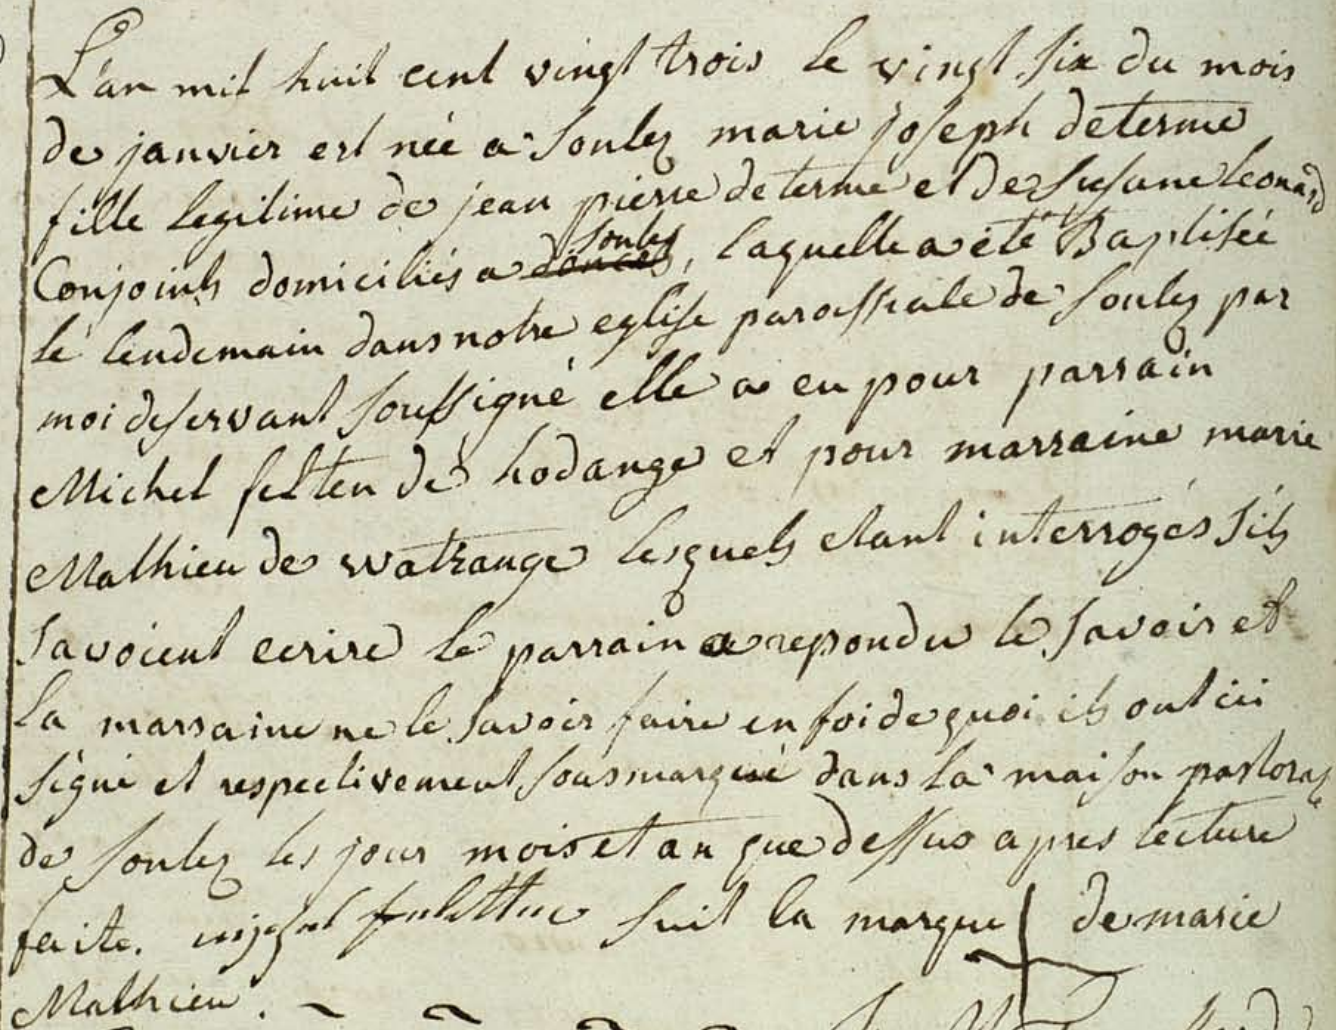 L'an mil huit cent vingt trois le vingt six du mois
de janvier est née a Soulez marie joseph determe
fille legitime de jean pierre determe et de Susane Leonard
Conjoints domiciliés a Soulez, laquelle a été Baptisée
le lendemain dans notre eglise paroissiale de Soulez par
moi deservant soussigné elle a eu pour parrain
Michel felten de hodange et pour marraine marie
Mathieu de watrange lesquels etant interrogés s'ils
savoient ecrire le parrain a repondu le savoir et
la marraine ne le savoir faire en foi de quoi ils ont ici
signé et respectivement sousmarqué dans la maison pastorale
de Soulez les jour mois et an que dessus apres lecture
faite. suit la marque de marie
Mathieu.